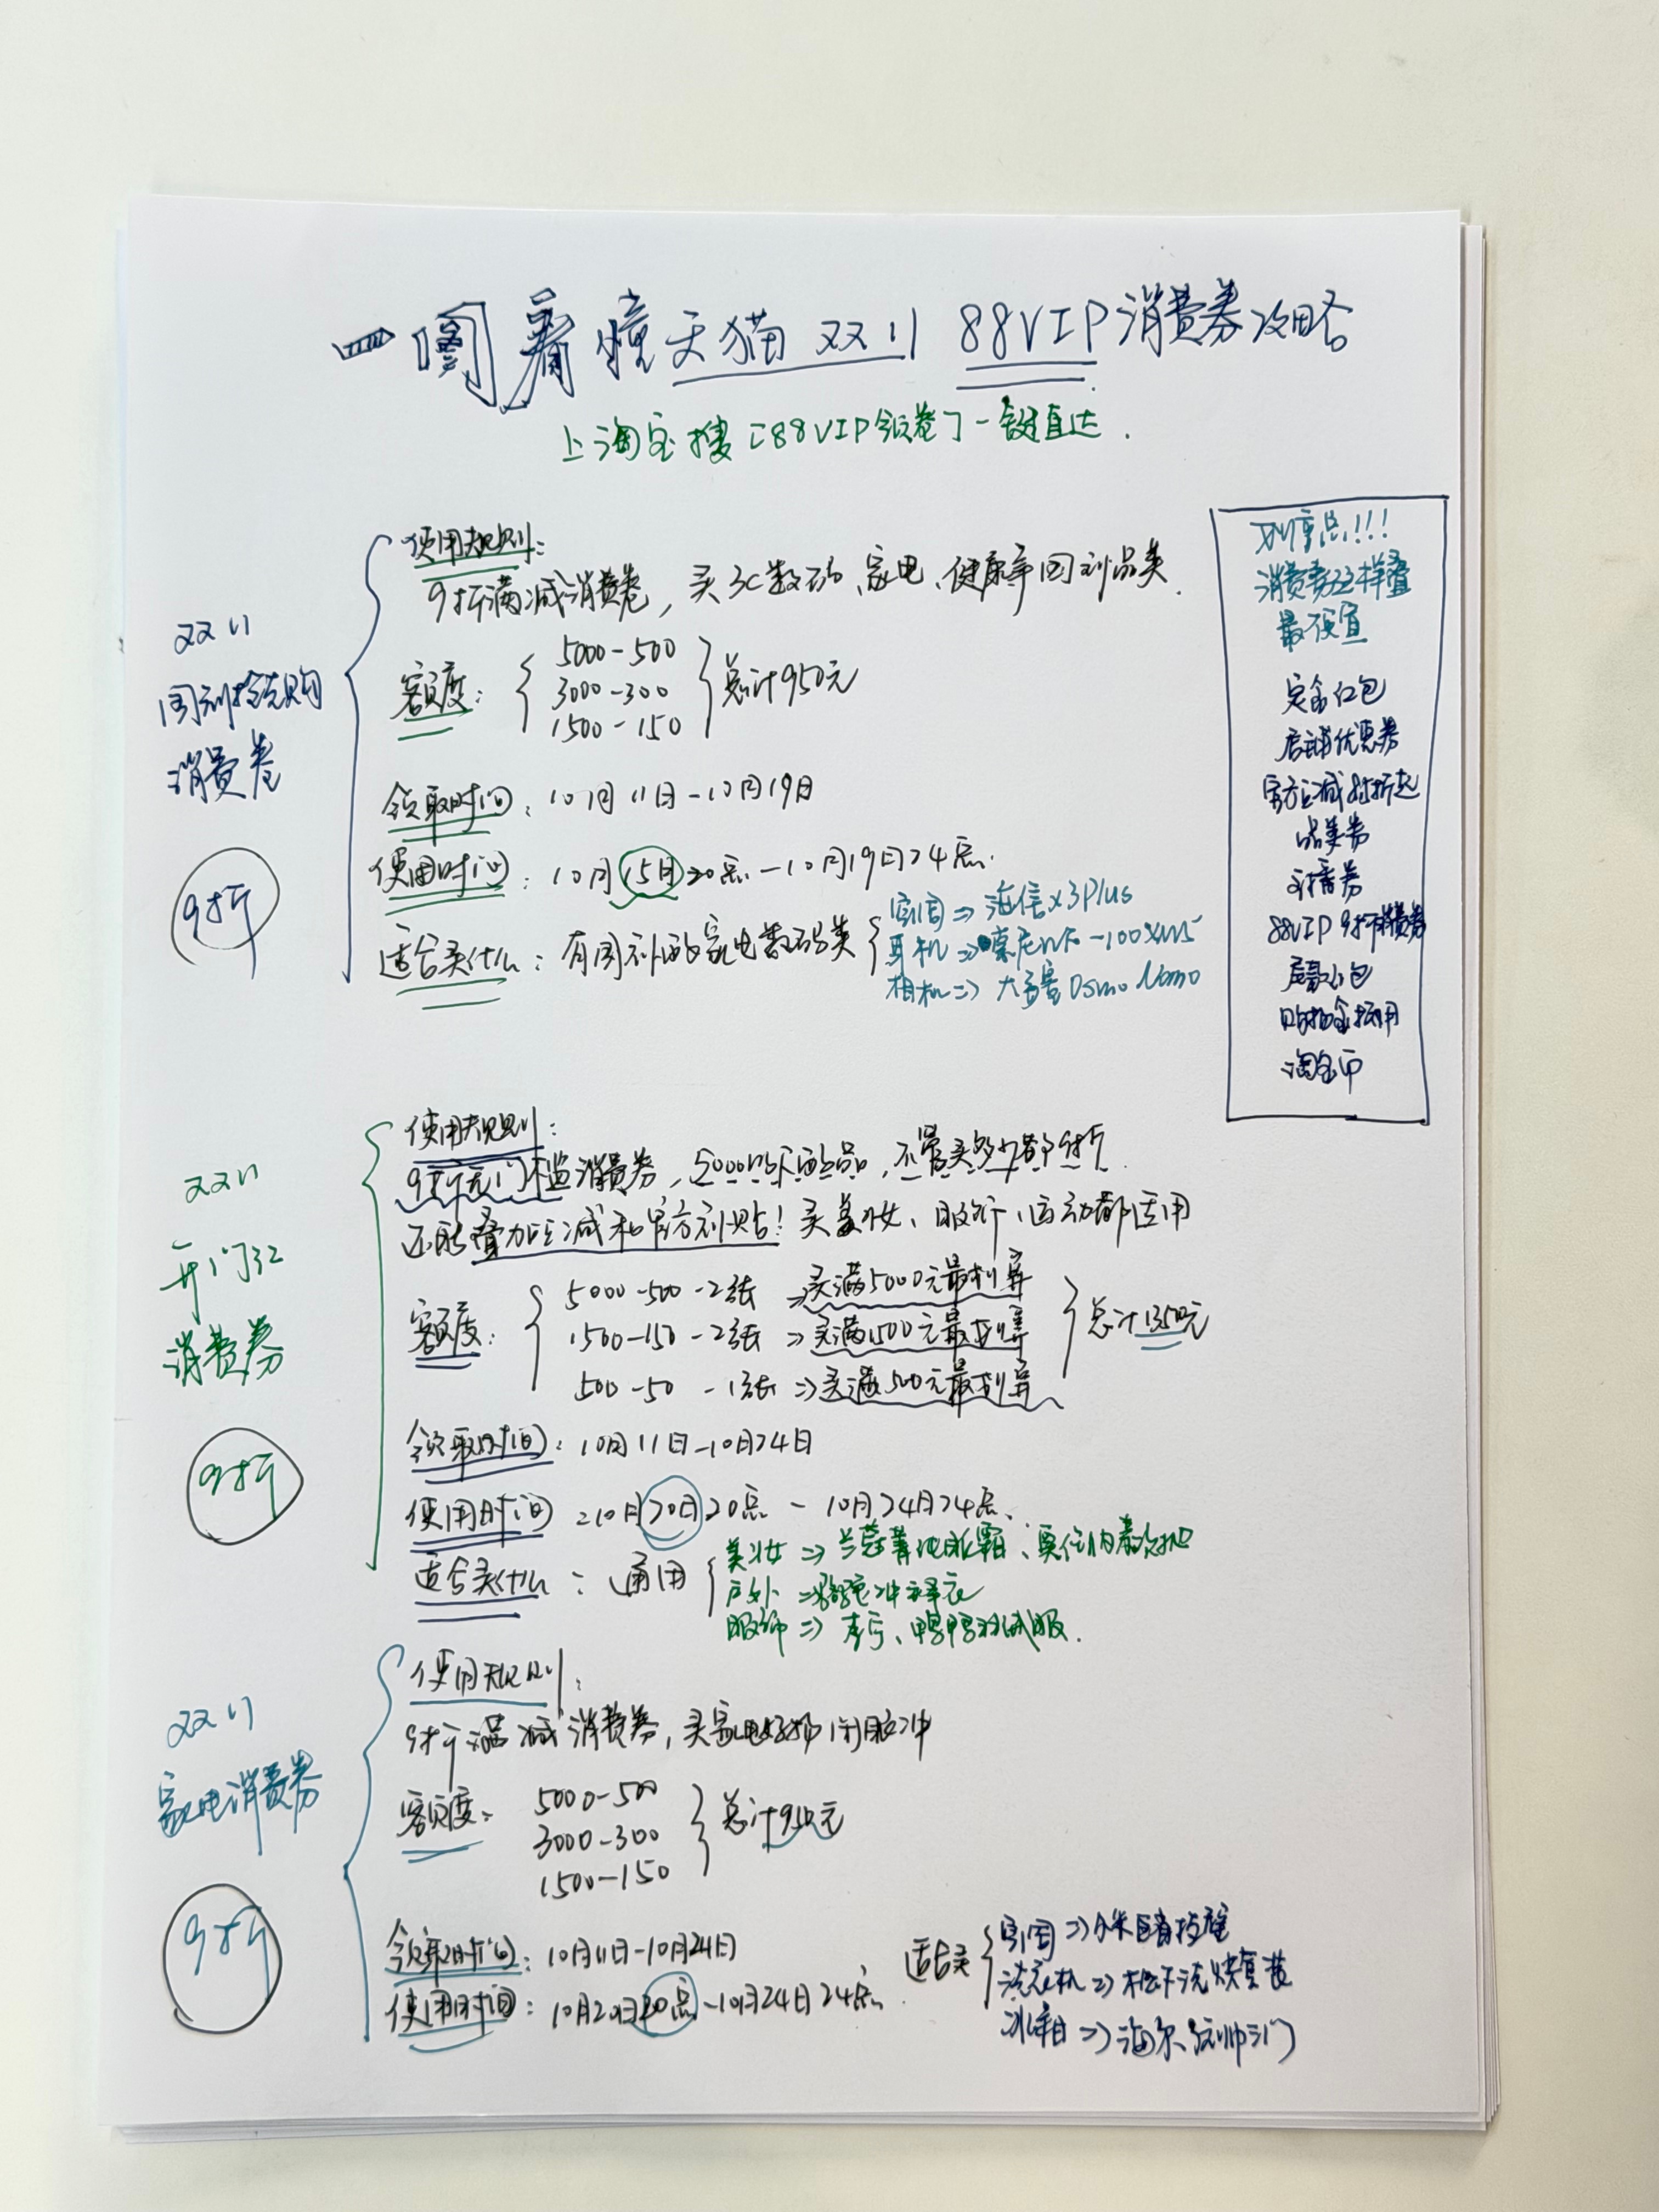 一图看懂天猫双11 88VIP消费券攻略
上淘宝搜[88VIP领卷]一键直达.
双11
国补抢先购
消费卷
9折
使用规则:
9折满减消费卷,买3C数码、家电、健康等国补品类.
额度:
5000-500
3000-300
1500-150
总计950元
领取时间:10月11日-10月19日
使用时间:10月15日20点-10月19日24点.
适合买什么:有国补的家电数码类
耳机⇒索尼
相机⇒大疆Osmo Nano
划重点!!!
消费券这样叠
最便宜
定金红包
店铺优惠券
官方立减85折起
品类券
补播券
88VIP 9折消费券
尾款红包
购物金抵用
淘金币
双11
开门红
消费券
9折
使用规则:
9折无门槛消费券,5000以下商品,不管买多少都9折.
还能叠加立减和官方补贴!买美妆、服饰、运动都适用
额度:
5000-500-2张⇒买满5000元最划算
1500-150-2张⇒买满1500元最划算
500-50-1张⇒买满500元最划算
总计1350元
领取时间:10月11日-10月24日
使用时间:10月20日20点-10月24日24点.
适合买什么:通用
美妆⇒兰蔻菁纯面霜、
户外⇒骆驼冲锋衣
服饰⇒李宁、鸭鸭羽绒服.
双11
家电消费券
9折
使用规则:
9折满减消费券,买家电好物闭眼冲
额度:
5000-500
3000-300
1500-150
总计950元
领取时间:10月11日-10月24日
使用时间:10月20日20点-10月24日24点.
适合买
洗衣机⇒松下洗烘套装
冰箱⇒海尔、